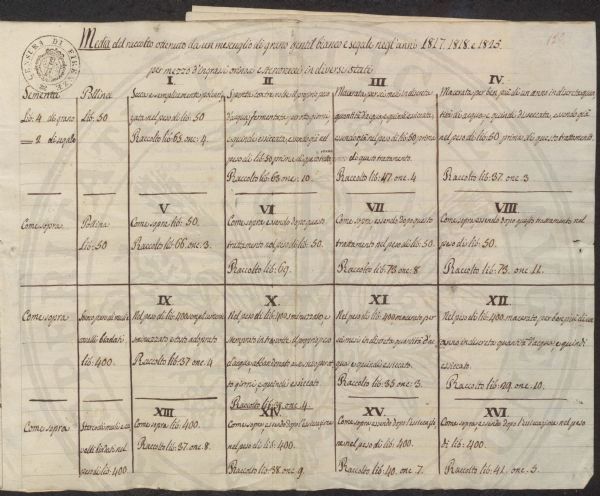 CENSURA DI FIRENZE
Media del raccolto ottenuto da un mescuglio di grano gentil bianco e segale negl'anni 1817. 1818. e 1825.
per mezzo d'ingrassi orinosi e stercoracei in diversi stati
Sementa
Lib: 4. di grano
= 2. di segale
Pollina
Lib: 50
I
Secca e semplicemente polveriz-
zata nel peso di lib: 50
Raccolto lib: 63. onc: 4.
II
d'acqua, fermentata per otto giorni,
e quindi essiccata, essendo già nel
peso di lib: 50 prima di questo trat.
Raccolto lib: 63 onc: 10.
III
Macerata per sei mesi in discreta
quantità d'acqua e quindi essiccata,
essendo già nel peso di lib: 50 prima
di questo trattamento.
Raccolto lib: 47. onc. 4
IV
Macerata per ben più di un anno in discreta quan-
tità di acqua e quindi di seccata, essendo già
nel peso di lib: 50 prima di questo trattamento.
Raccolto lib: 37. onc. 3
Come sopra
Pollina
Lib: 50
V
Come sopra lib: 50.
Raccolto lib: 66 onc: 3.
VI
Come sopra essendo dopo questo
trattamento nel peso di lib: 50.
Raccolto lib: 69.
VII
Come sopra essendo dopo questo
trattamento nel peso di lib: 50.
Raccolto lib: 73 onc: 8
VIII
Come sopra essendo dopo questo trattamento nel
peso di lib: 50.
Raccolto lib: 73. onc 11.
Come sopra
cavalli biadati
lib: 400.
IX
Nel peso di lib: 400 semplicemente
sminuzzato e tosto adoprato
Raccolto lib: 37 onc. 4
X
Nel peso di lib: 400 sminuzzato e
d'acqua, abbandonato a se stesso per ot-
to giorni e quindi essiccato
Raccolto lib: 38. onc. 4.
XI
Nel peso di lib: 400 macerato per
sei mesi in discreta quantità d'ac
qua e quindi essiccato.
Raccolto lib: 35. onc: 3.
XII
Nel peso di lib: 400, macerato per ben più di un
anno in discreta quantità d'acqua, e quindi
essiccato.
Raccolto lib: 29. onc. 10.
Come sopra
Sterco di muli e ca-
valli biadati nel
peso di lib: 400
XIII
Come sopra lib: 400.
Raccolto lib: 37. onc. 8.
XIV
Come sopra essendo dopo l'essiccazione
nel peso di lib: 400.
Raccolto lib: 38 onc. 9.
XV
Come sopra essendo dopo l'essiccazio
ne nel peso di lib: 400.
Raccolto lib: 40. onc. 7.
XVI
Come sopra essendo dopo l'essiccazione nel peso
di lib: 400.
Raccolto lib: 41. onc. 5.